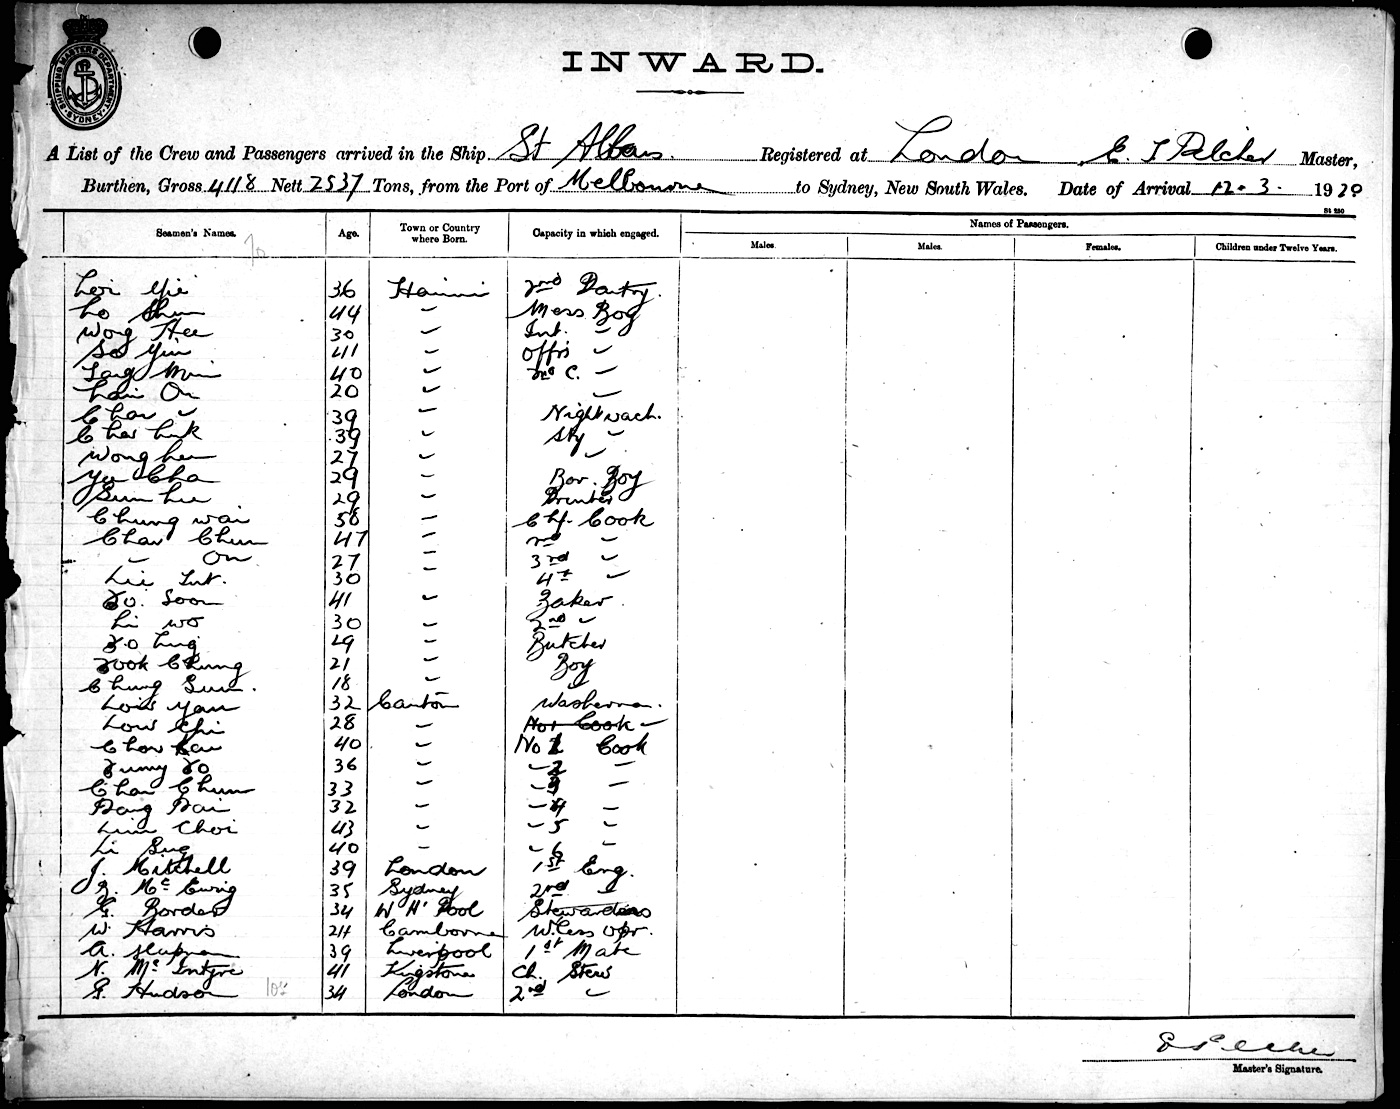 SHIPPING MASTERS DEPARTMENT SYDNEY
INWARD.
A List of the Crew and Passengers arrived in the Ship St Albans. Registered at London E. J Pilcher Master,
Burthen, Gross 4118 Nett 2537 Tons, from the Port of Melbourne to Sydney, New South Wales. Date of Arrival 12. 3. 1920
Names of Passengers.
Seamen's Names. Age. Town or Country where Born. Capacity in which engaged. Males. Males. Females. Children under Twelve Years.
36 2nd Pantry.
Lo Shun 44 " Mess Boy
Wong Hee 30 " Int. "
So Yin 41 " Offrs "
40 " 2nd C. "
Lam On 20 " "
Chan " 39 " Nightwach.
Chas Luk 39 " Sty "
Wong Lun 27 " "
Yu Cha 29 " Bar. Boy
Sum Lee 29 " Printer
Chung Wai 58 " Chf. Cook
Chan Chun 47 " 2nd "
" On 27 " 3rd "
Lee 30 " 4th "
Fo. Soon 41 " Baker.
Li Wo 30 " 2nd "
Fo Ling 29 " Butcher
Fook Chung 21 " Boy
Chung Sun. 18 " "
Lois Yau 32 Canton Washerman.
Low Chi 28 " Not Cook "
Chow Lau 40 " No 1 Cook
Fumy Fo 36 " " 2 "
Chan Chun 33 " " 3 "
32 " " 4 "
Lim Choi 43 " " 5 "
Li Sug 40 " " 6 "
J. Mitchell 39 London 1st Eng.
R. McEwing 35 Sydney 2nd "
G. Borden 34 W H' Pool Stewardess
W. Harris 24 Camborne W.less Opr.
A. Chapman 39 Liverpool 1st Mate
N. McIntyre 41 Kingstone Ch. Stew
G. Hudson 34 London 2nd "
E Pilcher
Master's Signature.